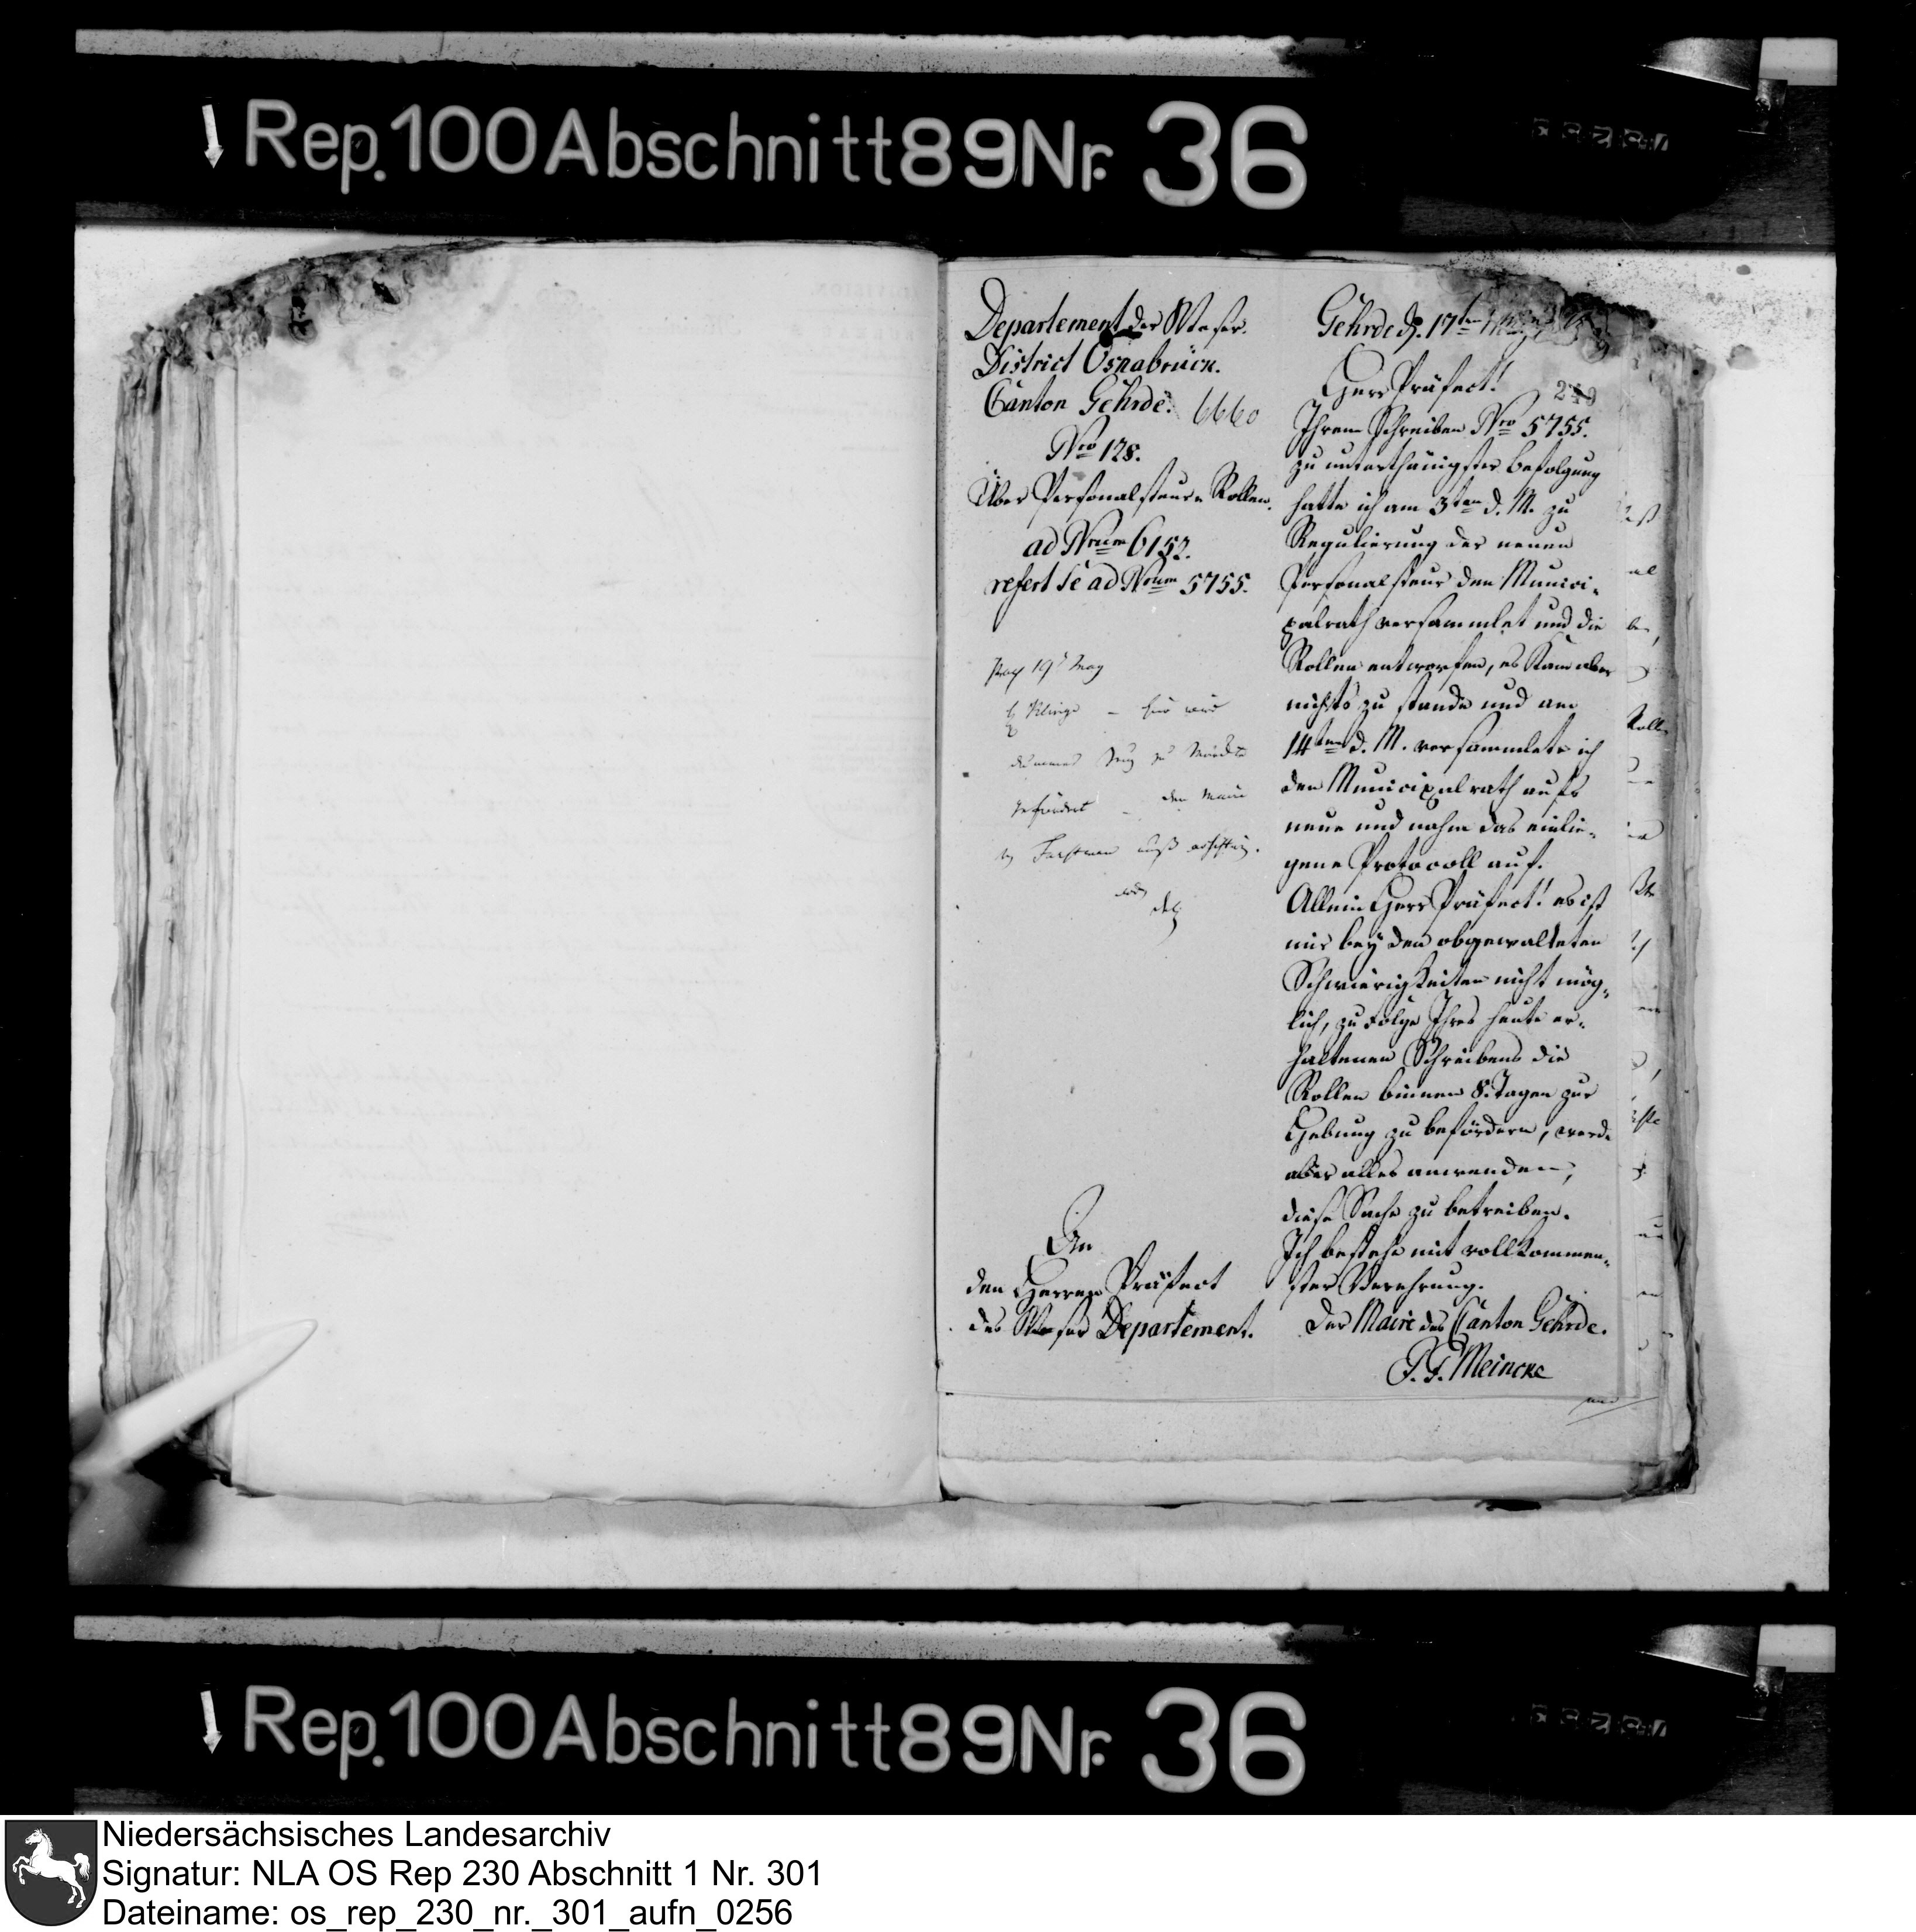 Rep. 100 Abschnitt 89 Nr. 36
Departement der Weser.
District Osnabrück.
Canton Gehrde.
6660
Nro 128.
Über Personalsteur Rollen.
ad Nrum 6152.
refert se ad Nrum 5755.
19 May
An
den Herren Präfect
des Weser Departement.
Gehrde d. 17ten
249
Herr Präfect!
Ihrem Schreiben Nro 5755.
zu unterthänigster Befolgung
hatte ich am 3ten d. M. zu
Regulierung der neuen
Personalsteur den Munici-
palrath versammlet und die
Rollen entworfen, es kam aber
nichts zu stande und am
14ten d. M. versammlete ich
den Municipalrath aufs
neue und nahm das einlie-
gene Protocoll auf.
Allein Herr Präfect! es ist
mir bey den obgewalteten
Schwierigkeiten nicht mög-
lich, zu Folge Ihres heute er-
haltenen Schreibens die
Rollen binnen 8. Tagen zur
Hebung zu befördern, werde
aber alles anwenden,
diese Sache zu betreiben.
Ich bestehe mit vollkommen-
ster Verehrung.
Der Maire des Canton Gehrde.
Meincke
Rep. 100 Abschnitt 89 Nr. 36
Niedersächsisches Landesarchiv
Signatur: NLA OS Rep 230 Abschnitt 1 Nr. 301
Dateiname: os_rep_230_nr._301_aufn_0256